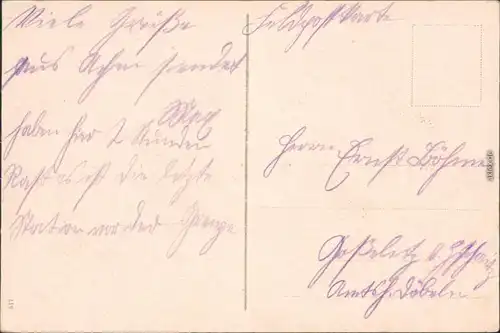 Viele Grüße
aus Achen sendet
May
haben hier 2 Stunden
Rast es ist die letzte
Station vor der Grenze
Feldpostkarte
Herrn Ernst Böhme
b.
Amtsh. Döbeln
117